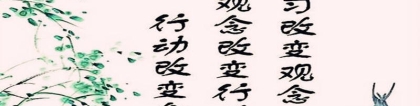 习改变观念
观念改变行
行动改变